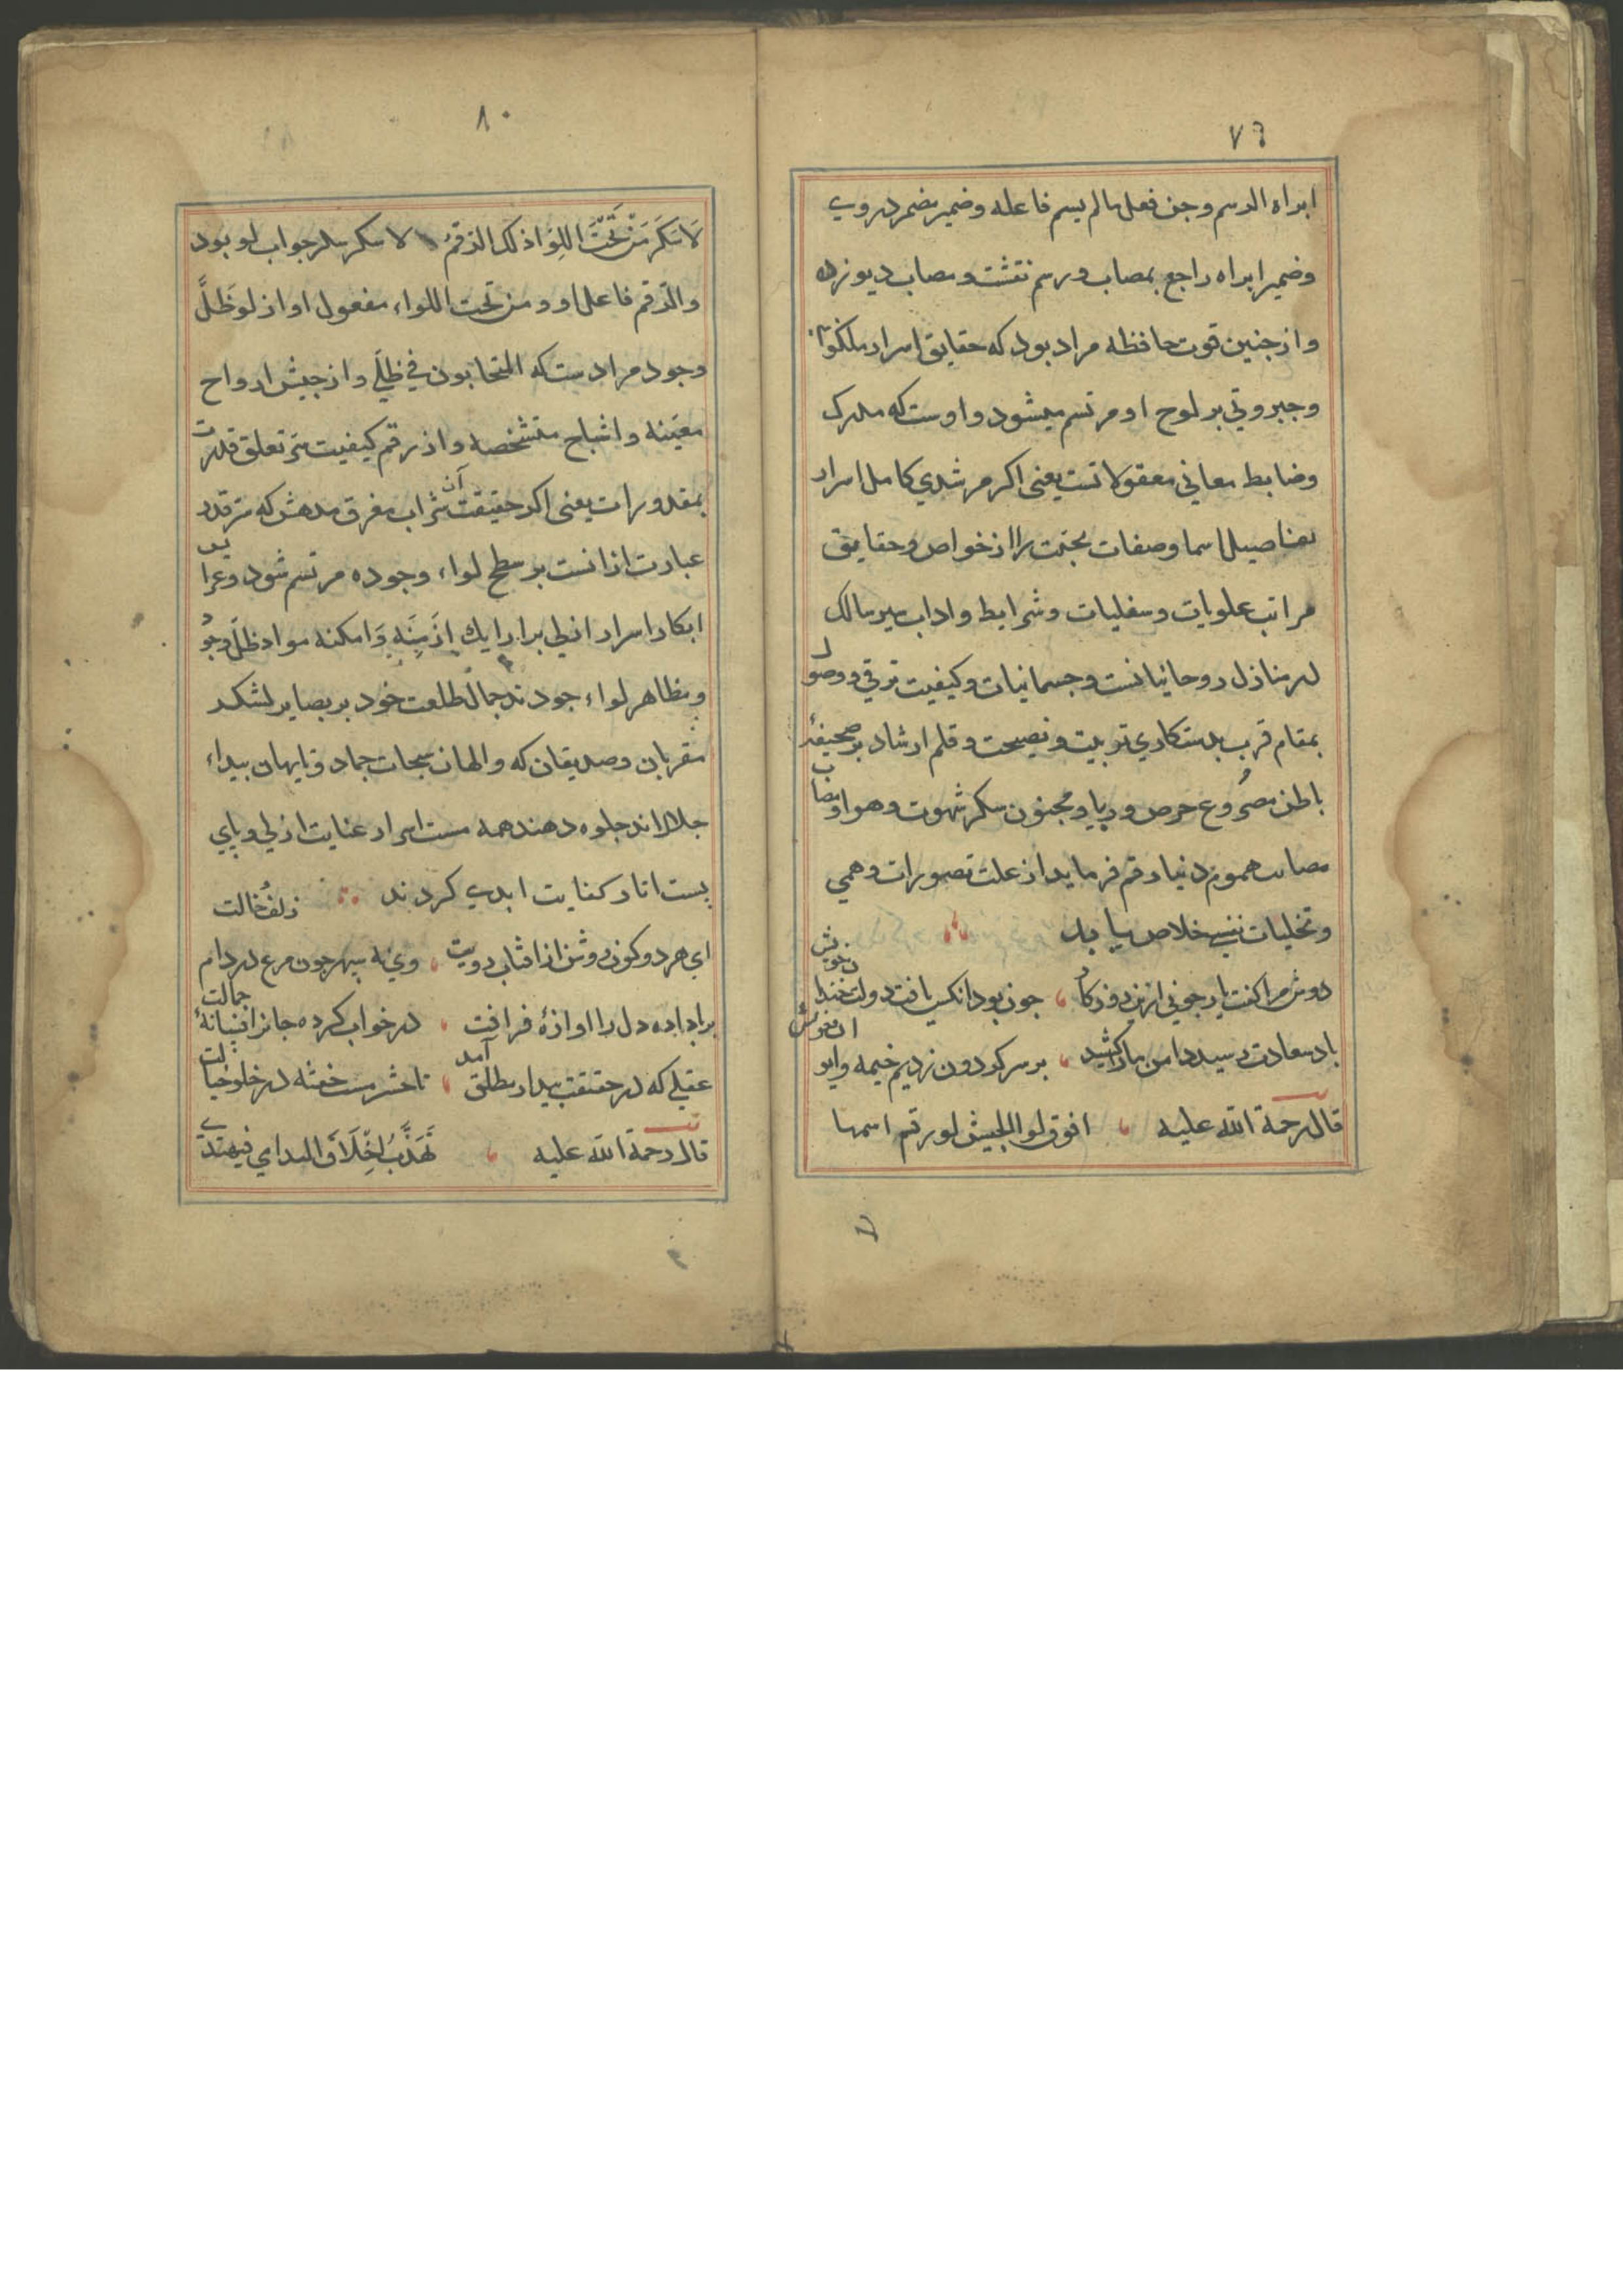 ٧٩
ابراه الرسم وجن فعل مالم يسم فاعله وضمير مضمر در وي
وضمير ابراه راجع بمصاب ورسم نقشت ومصاب ديو زده
واز جنين قوت حافظه مراد بود كه حقايق اسرار ملكوتي
وجبروتي بر لوح او مرتسم ميشود واوست كه مدرك
وضابط معاني معقولاتست يعنى اكر مرشدي كامل اسرار
تفاصيل اسما وصفات را از خواص وحقايق
مراتب علويات وسفليات وشرايط واداب سير سالك
در منازل روحانيانست وجسمانيات وكيفيت ترقي ووصول
بمقام قرب بدستكاري تربيت ونصيحت وقلم ارشاد بر صحيفهٔ
باطن مصروع حرص وريا ومجنون سكر شهوت وهوا ومصاب
مصائب هموم دنيا رقم فرمايد از علت تصورات وهمي
وتخليات نفسي خلاص يابد
دوش مرا كفت يار جوني ازين روزكار جون بود انكس يافت دولت خندان خويش
باد سعادت رسيد دامن ما را كشيد بر سر كردون زديم خيمه وايوان خويش
قال رحمة الله عليه وفوق لواء الجيش لو رقم اسمها
٨٠
لاسكر من تحت اللوا ذلك الرقم لاسكر سكر جواب لو بود
والرقم فاعل او ومن تحت اللواء مفعول او از لو ظلّ
وجود مرادست كه المتحابون في ظلي واز جيش ارواح
معينه واشباح متشخصه واز رقم كيفيت سر تعلق قدرت
بمقدورات يعنى اكر حقيقت آن شراب مفرق مدهش كه سر قدر
عبارت ازانست بر سطح لواء وجوده مرتسم شود وعرايس
ابكار اسرار ازلي بر ارايك ازمنه وامكنه مواد ظل وجود
ومظاهر لواء جودند جمال طلعت خود بر بصاير لشكر
مقربان وصديقان كه والهان سبحات جماد وتايهان بيداء
جلال اند جلوه دهند همه مست اسرار عنايت ازلي وباي
بست اثار كفايت ابدي كردند زلف خالت
اي هر دو كون روشن از افتاب رويت وي نه سپهر جون مرغ در دام
بر باد داده دل را اوازهٔ فراقت در خواب كرده جانرا افسانهٔ جمالت
عقلي كه در حقيقت بيدار مطلق آمد تا حشر مست خفته در خلوخيالت
قال رحمة الله عليه تهذّب اخلاق الندامي فيهتدي